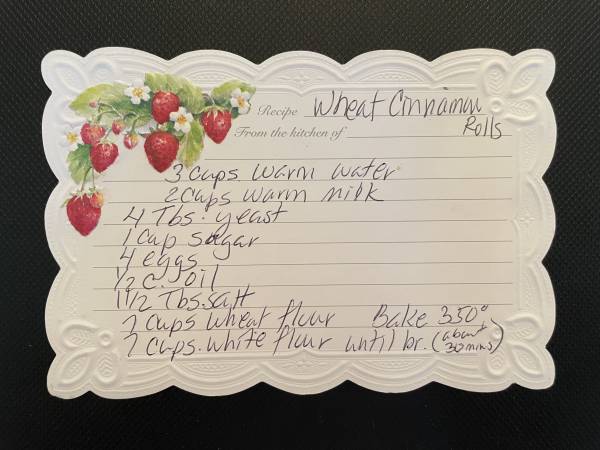 Recipe Wheat Cinnamon
Rolls
From the kitchen of
3 cups warm water
2 cups warm milk
4 Tbs. yeast
1 cup sugar
4 eggs
1/2 c. oil
1 1/2 Tbs. salt
7 cups wheat flour Bake 350°
7 cups. white flour until br. (about 30 mins)